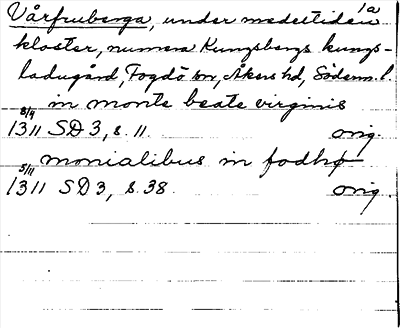 1a
Vårfruberga, under medeltiden
kloster, numera Kungsbergs kungs-
ladugård, Fogdö sn, Åkers hd, Söderm. l.
in monte beate virginis
8/9
1311 SD 3, s. 11. orig.
monialibus in fodhø
5/11
1311 SD 3, s. 38. orig.